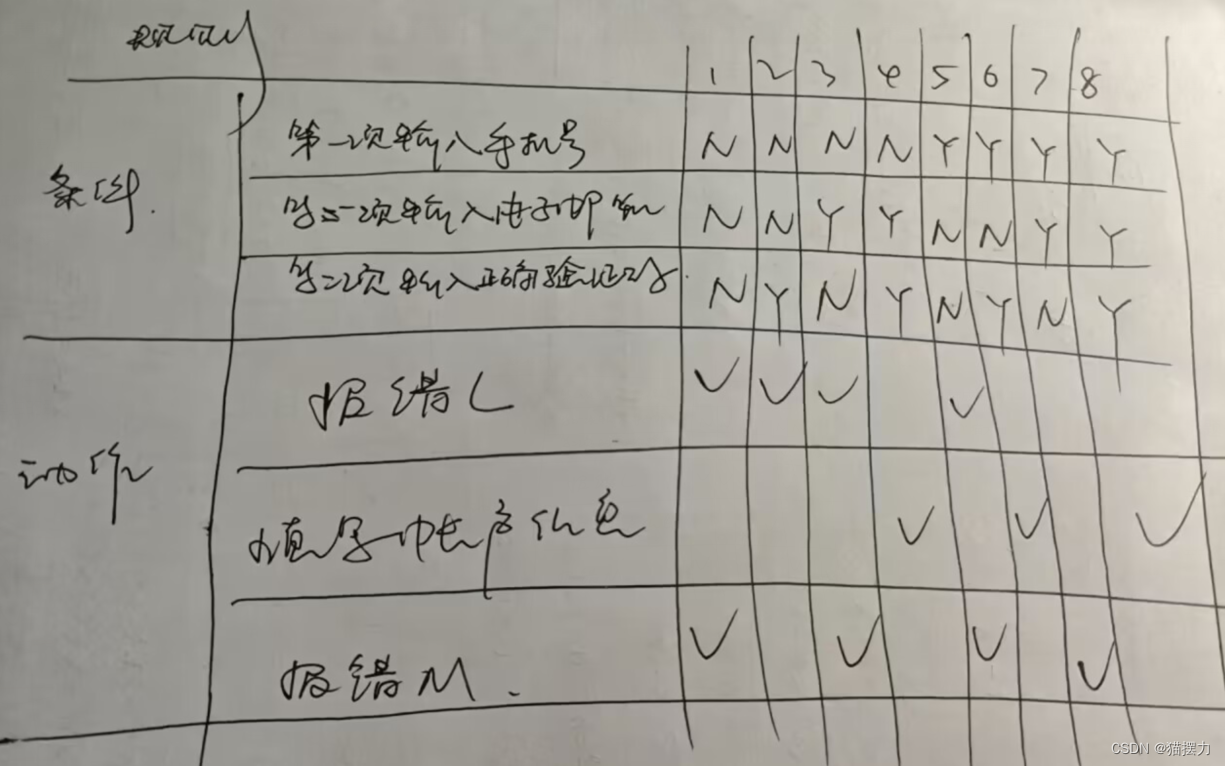 规则
1 2 3 4 5 6 7 8
条件.
第一次输入手机号 N N N N Y Y Y Y
第一次输入电子邮箱 N N Y Y N N Y Y
第二次输入正确验证 N Y N Y N Y N Y
动作
报错L ✓ ✓ ✓ ✓
填写 信息 ✓ ✓ ✓
报错M. ✓ ✓ ✓ ✓
CSDN @猫摆力